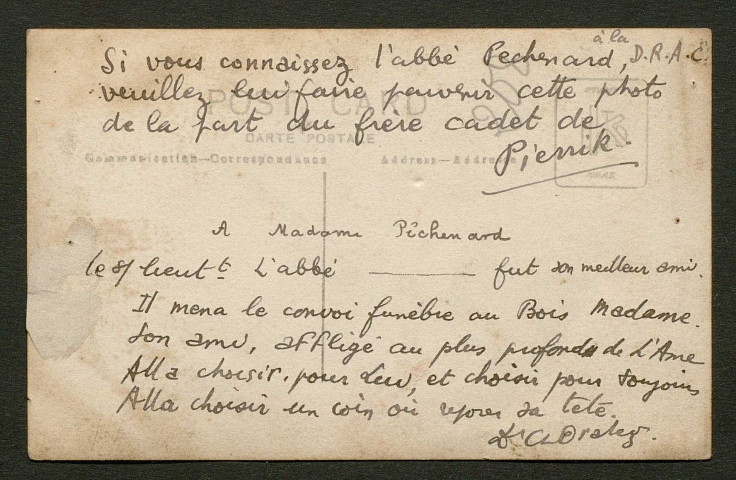 à la
Si vous connaissez l'abbé Pechenard, D.R.A.C.
veuillez lui faire parvenir cette photo
de la part du frère cadet de
Pierrik.
POST CARD
CARTE POSTALE
Communication—Correspondance
Address—Adresse
A Madame Péchenard
le s/ lieutt L'abbé ——— fut son meilleur ami.
Il mena le convoi funèbre au Bois Madame.
Son ami, affligé au plus profond de l'Ame
Alla choisir, pour Lui, et choisir pour toujours
Alla choisir un coin où reposer sa tete.